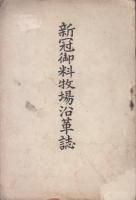 新冠御料牧場沿革誌